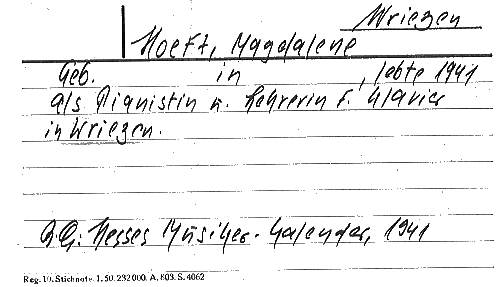 Wriezen
Hoeft, Magdalene
Geb. in , lebte 1941
als Pianistin u. Lehrerin f. Klavier
in Wriezen.
B.G: Hesses Musiker-Kalender, 1941
Reg. 10. Stichnote. 1. 50. 232 000. A. 803. S. 4062